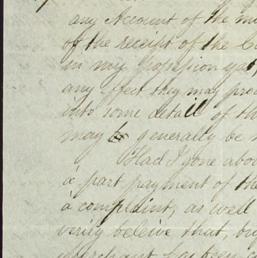 any Account of the
of the receipt of the
in my possession
any effect they may
into some detail of
may be generally be
Had I gone
a part payment of the
a complaint, as well
verily beleive that,